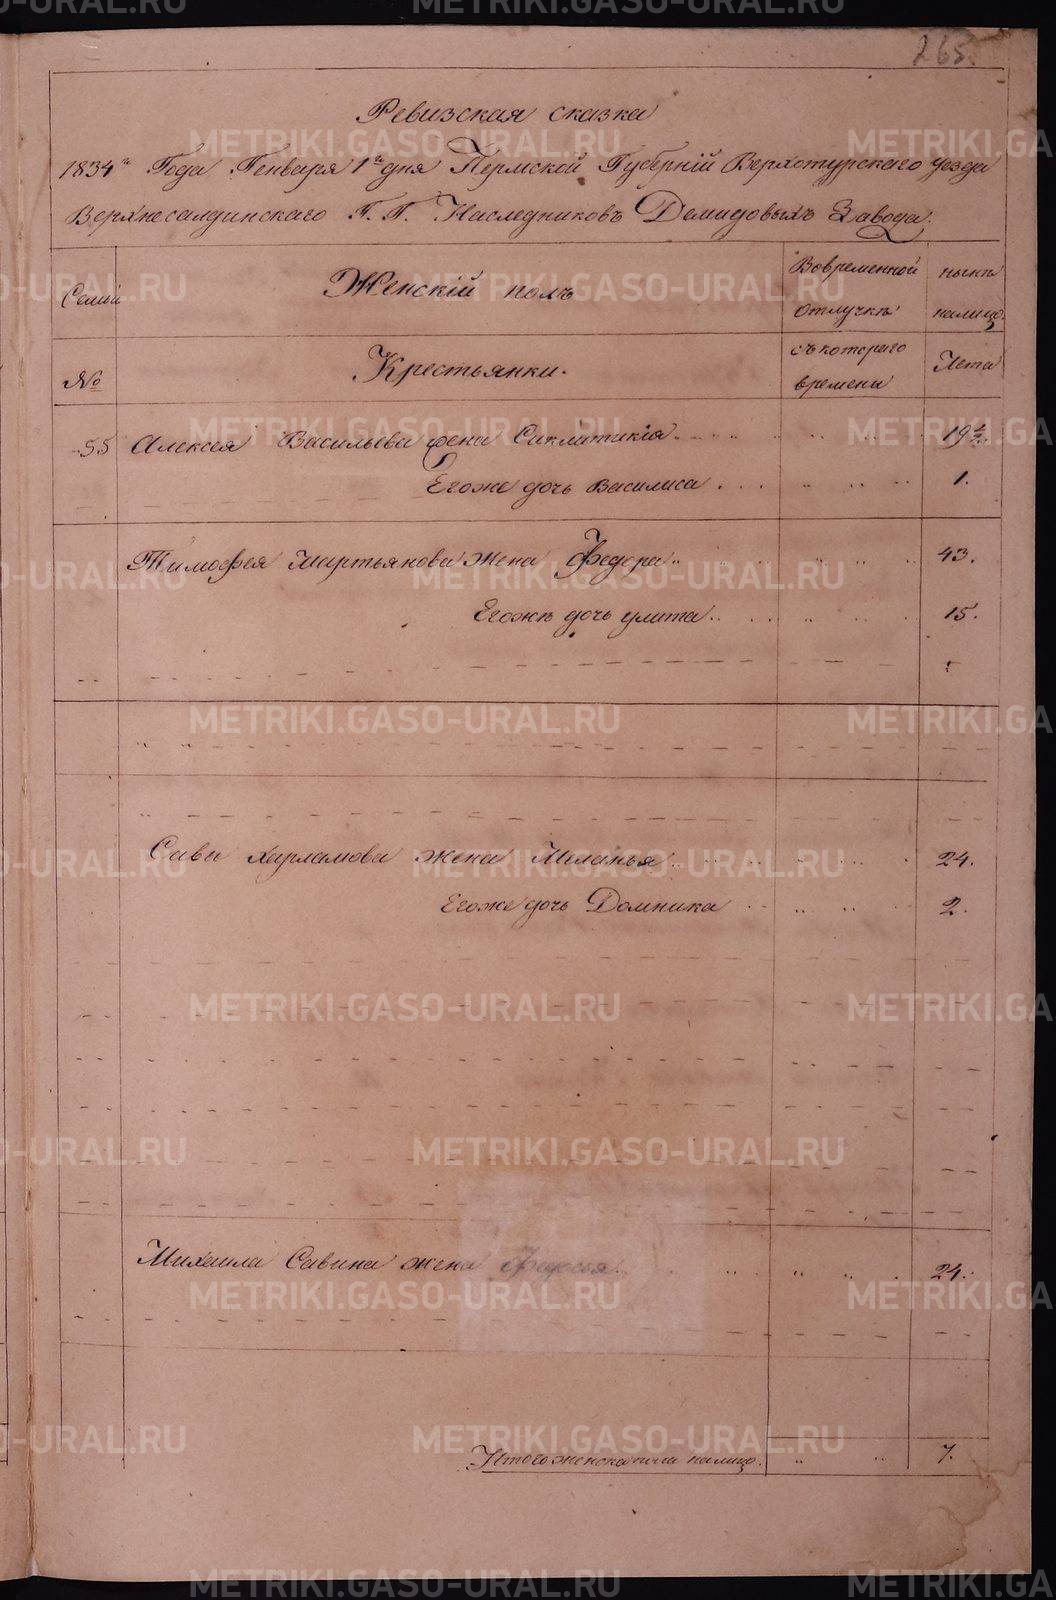 265.
Ревизская сказка
1834го Года Генваря 1го дня Пермской Губерніи Верхотурскаго уезда
Верхнесалдинскаго Г. Г. Наследниковъ Демидовыхъ Завода.
Семьи
Женскій полъ
Вовременной отлучкѣ
ныне налицо.
№
Крестьянки.
съкотораго времены
Лета
55 Алексея Васильева жена 19½.
Егоже дочь Василиса 1.
Тимофея Мартьянова жена Федора 43.
Егоже дочь улита 15.
Савы харламова жена Меланья 24.
Егоже дочь Домника 2.
Михаила Савина жена 24.
Итого женска пола налицо. 7.
METRIKI.GASO-URAL.RU